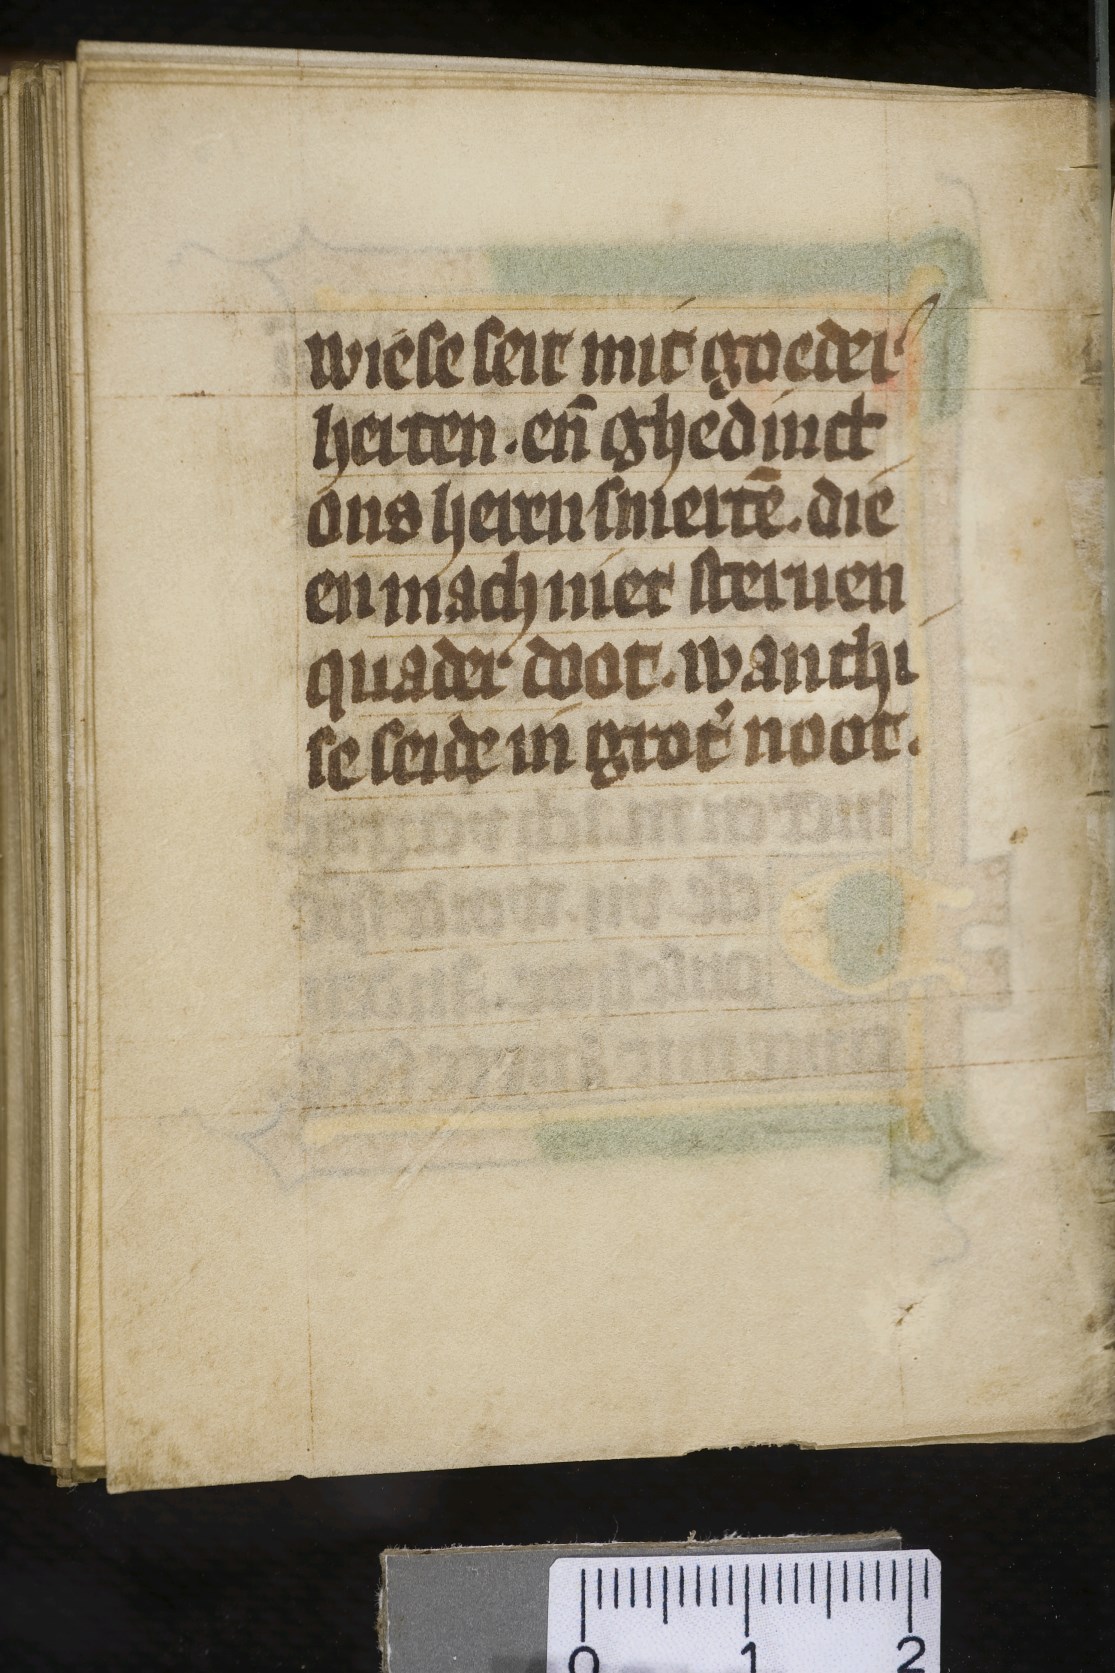 wie se seit mit goeder
herten . en̄ ghedinct
ons herrn smertē . die
en mach niet steruen
quader doot . want hi
se seide in grot' noot .
0 1 2